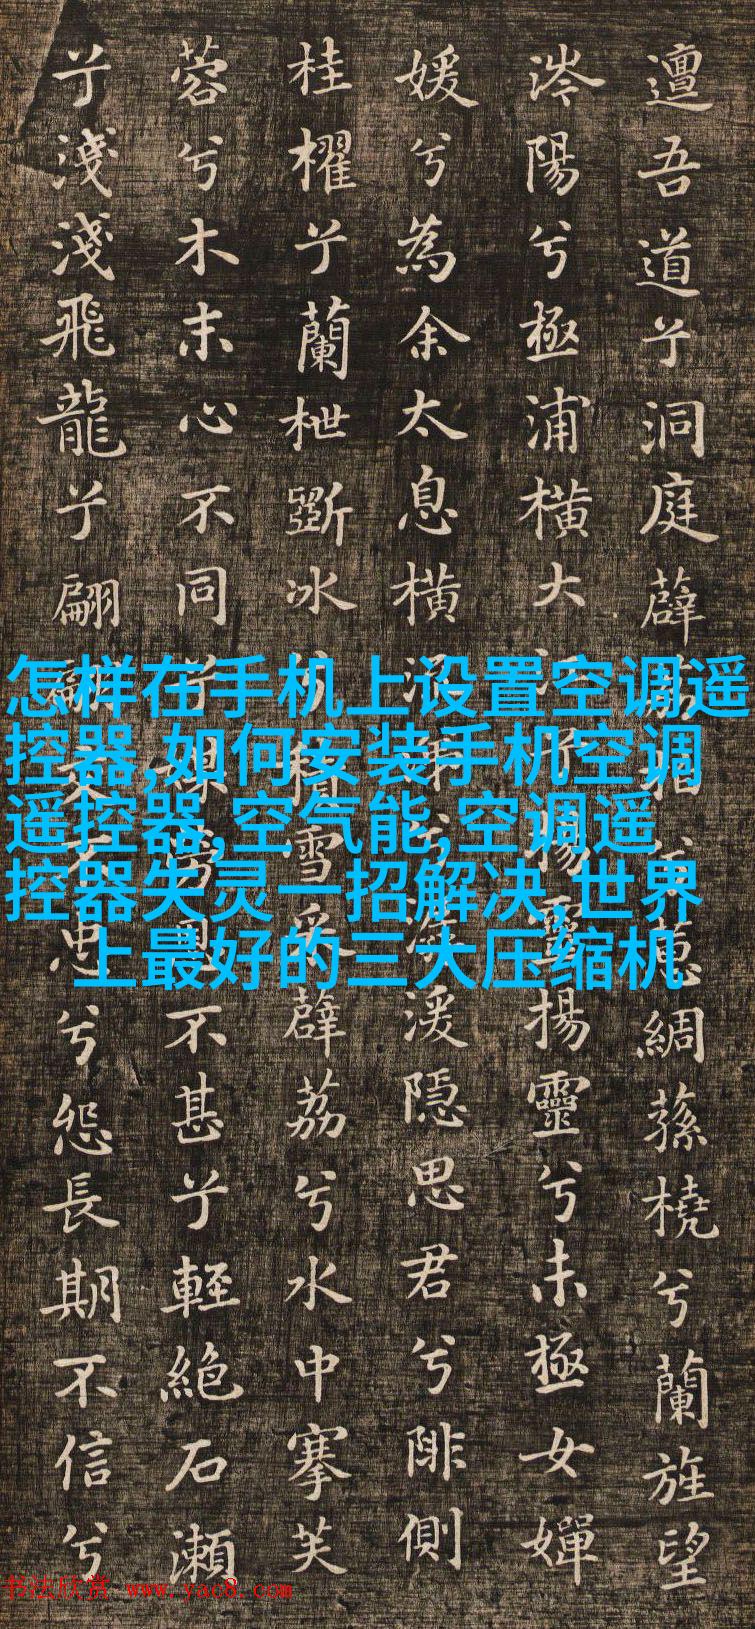 邅吾道兮洞庭薜荔拍兮蕙綢蓀橈兮蘭旌望
涔陽兮極浦橫大江兮揚靈揚靈兮未極女嬋
媛兮為余太息橫流涕兮潺湲隱思君兮陫側
桂櫂兮蘭枻斲冰積雪采薜荔兮水中搴芙
蓉兮木末心不同兮媒勞恩不甚兮輕絕石瀨
兮淺淺飛龍兮翩翩交不忠兮怨長期不信兮
怎样在手机上设置空调遥
控器,如何安装手机空调
遥控器,空气能,空调遥
控器失灵一招解决,世界
上最好的三大压缩机
书法欣赏 www.yac8.com